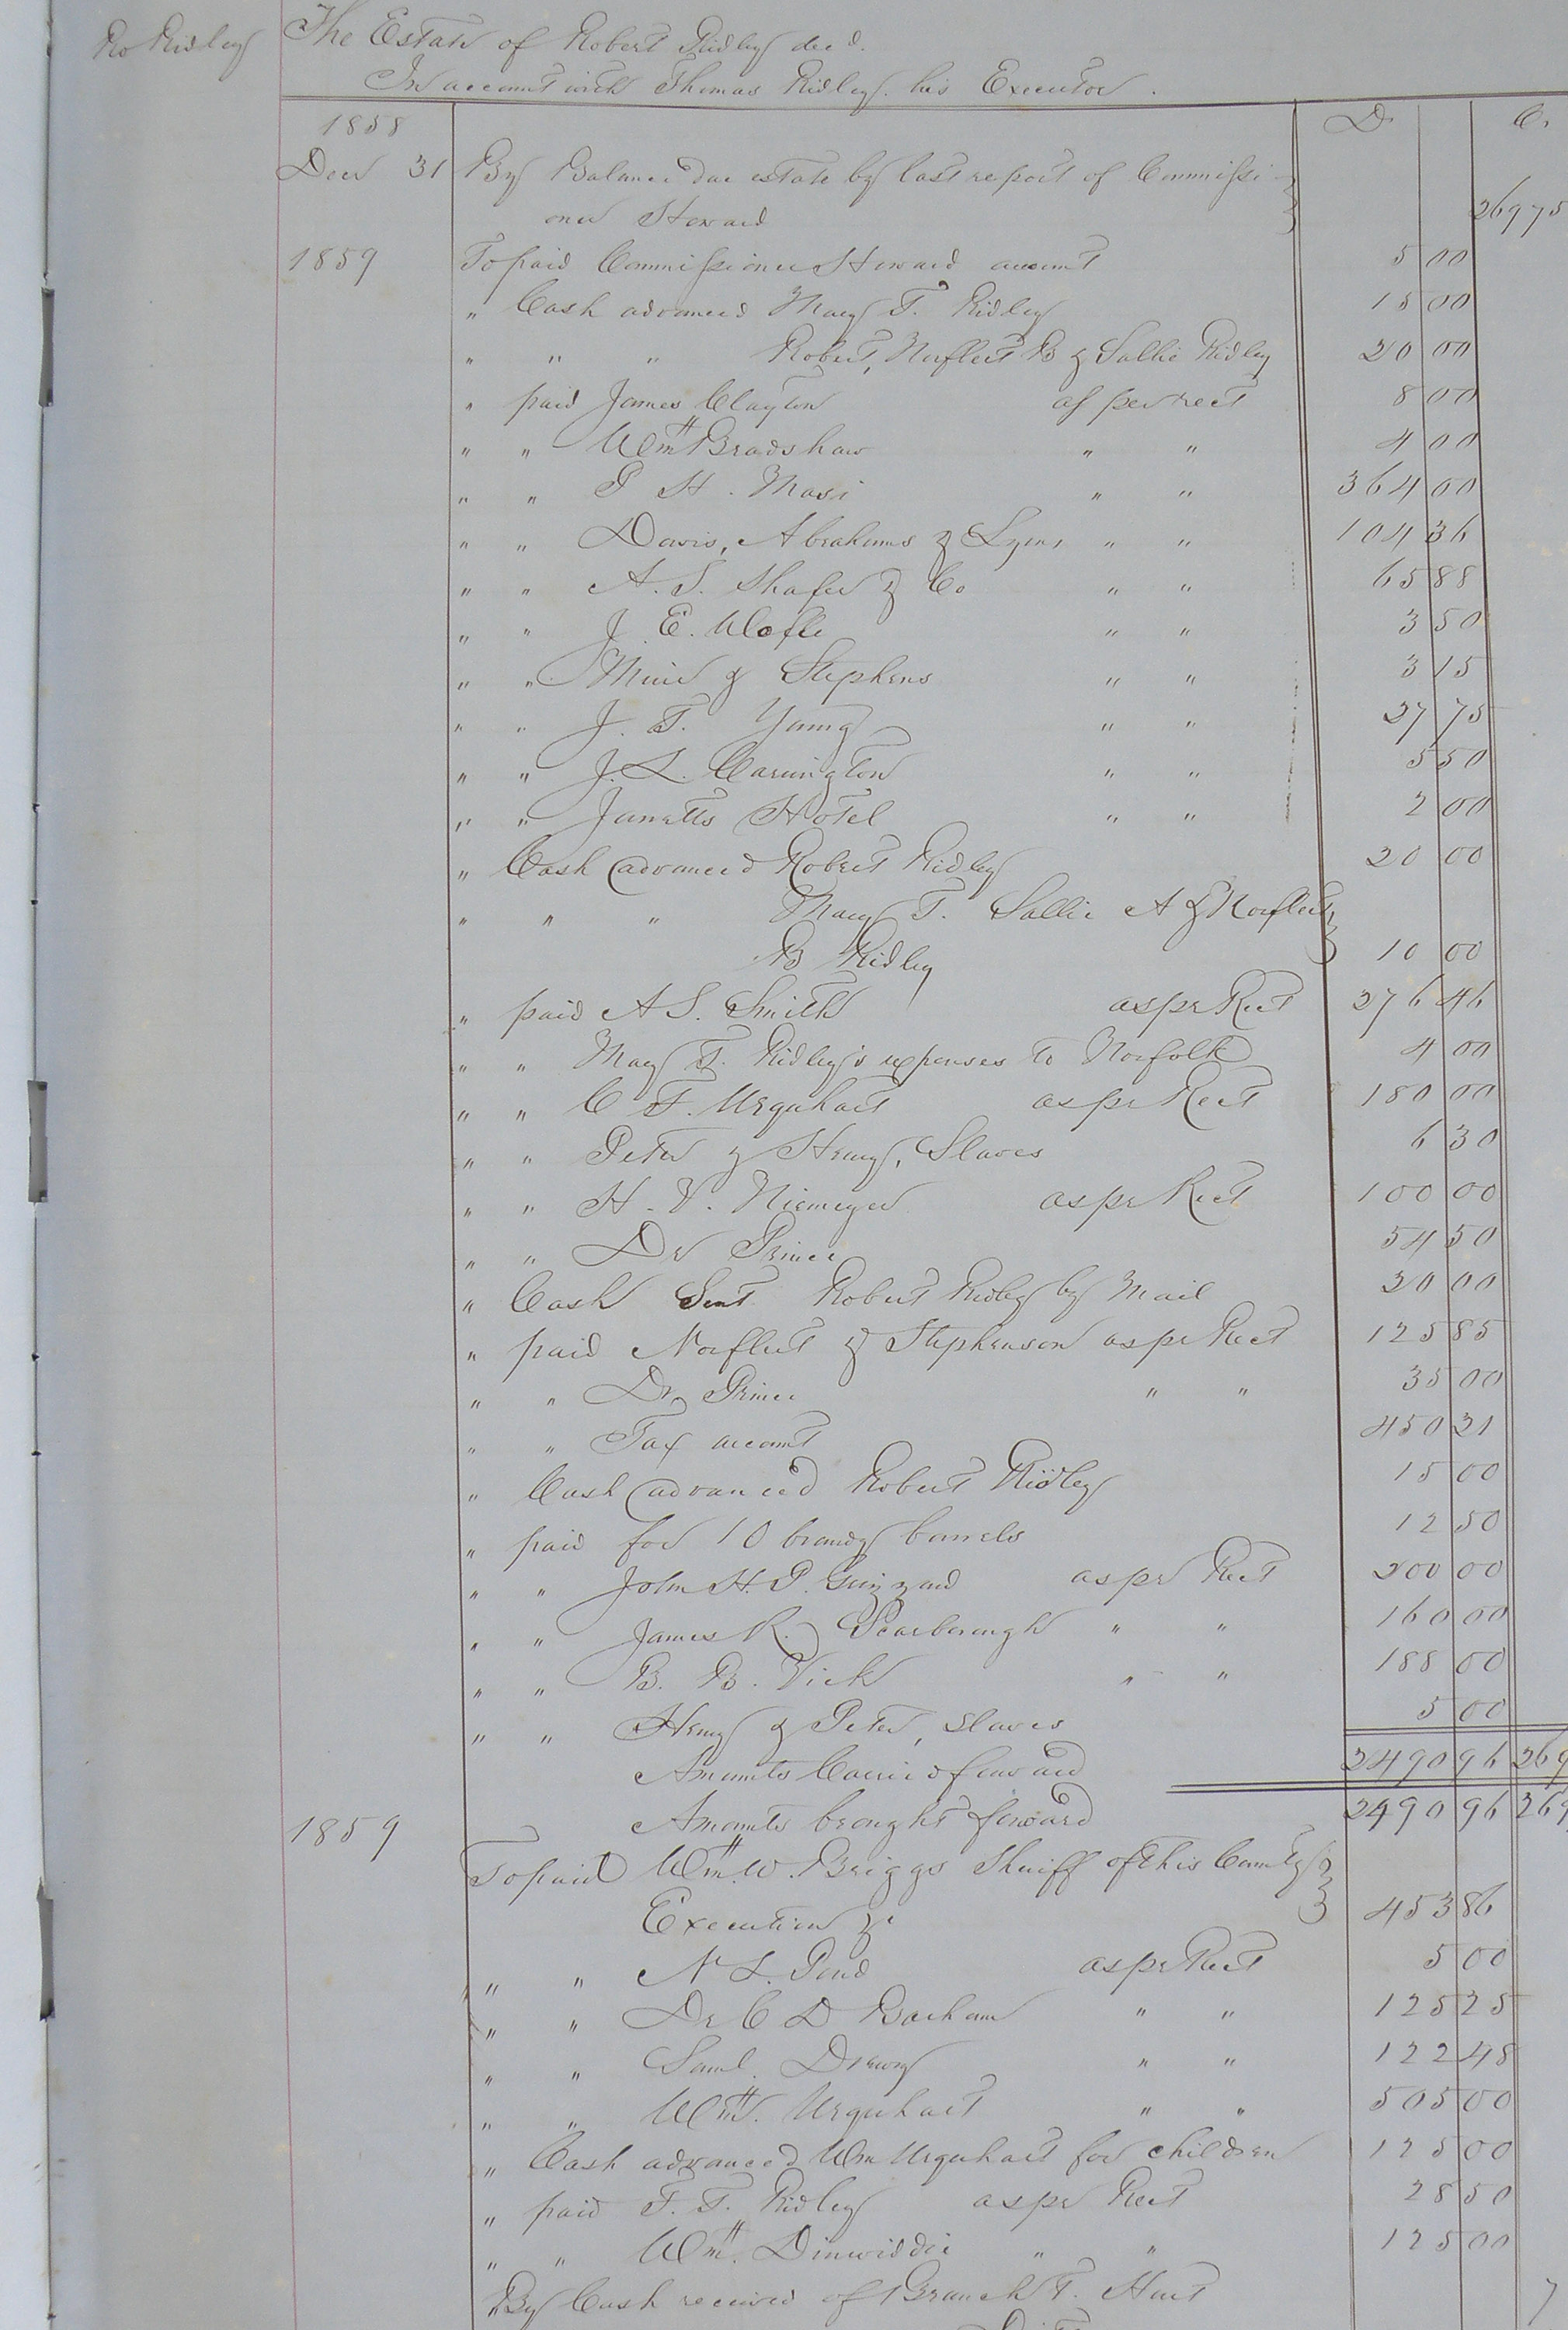 Ro Ridley
The Estate of Robert Ridley decd.
In account with Thomas Ridley. his Executor.
1858 D. C.
Decr 31 By Balance due estate by last report of Commissi-
oner Howard 26975
1859 To paid Commissioner Howard account 5 00
" Cash advanced Mary T. Ridley 15 00
" " " Robert, Norfleet B & Sallie Ridley 20 00
" paid James Clayton as per rect 8 00
" " Wm Bradshaw " " 4 00
" " P H. Masi " " 364 00
" " Davis, Abrahams & Lyons " " 104 36
" " A. S. Shafer & Co " " 65 88
" " J. E. Wolfe " " 3 50
" " Muir & Stephens " " 3 15
" " J. T. Young " " 27 75
" " J. L. Carrington " " 5 50
" " Jarratts Hotel " " 2 00
" Cash advanced Robert Ridley 20 00
" " " Mary T. Sallie A & Norfleet
B Ridley 10 00
" paid A S. Smith as pr Rect 276 46
" " Mary T. Ridley's expenses to Norfolk 4 00
" " C F. Urquhart as pr Rect 180 00
" " Peter & Henry, Slaves 6 30
" " H. V. Niemeyer as pr Rect 100 00
" " Dr Prince 54 50
" Cash Sent Robert Ridley by Mail 20 00
" paid Norfleet & Stephenson as pr Rect 125 85
" " Dr Prince " " 35 00
" " Tax account 450 21
" Cash advanced Robert Ridley 15 00
" paid for 10 brandy barrels 12 50
" " John H. P. Grizzard as pr Rect 200 00
" " James R. Scarborough " " 160 00
" " B. B. Vick " " 188 00
" " Henry & Peter, slaves 5 00
Amounts Carried forward 2490 96 269
1859 Amounts brought forward 2490 96 269
To paid Wm. W. Briggs Sheriff of this County
Execution &c 453 86
" " N L. Pond as pr Rect 5 00
" " Dr C D Barham " " 125 25
" " Saml. Drewry " " 122 48
" " Wm. Urquhart " " 505 00
" Cash advanced Wm Urquhart for children 125 00
" paid F. T. Ridley as pr Rect 28 50
" " Wm. Dinwiddie " " 125 00
By Cash received of Branch T. Hurt 7